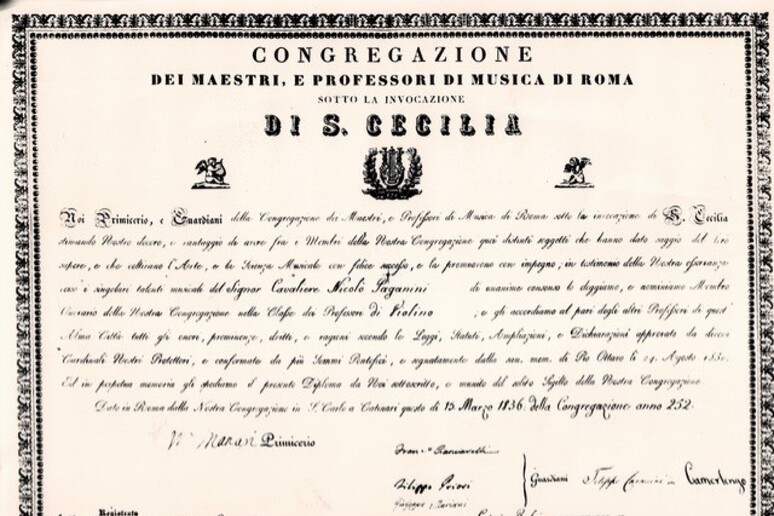 CONGREGAZIONE
DEI MAESTRI, E PROFESSORI DI MUSICA DI ROMA
SOTTO LA INVOCAZIONE
DI S. CECILIA
Noi Primicerio, e Guardiani della Congregazione dei Maestri, e Professori di Musica di Roma sotto la invocazione di S. Cecilia
stimando Nostro decoro, e vantaggio di avere fra i Membri della Nostra Congregazione quei distinti soggetti che hanno dato saggio del loro
sapere, e che coltivano l'Arte, e la Scienza Musicale con felice successo, e la promuovono con impegno; in testimonio della Nostra esultanza
così i singolari talenti musicali del Signor Cavaliere Nicolò Paganini di unanime consenso lo eleggiamo, e nominiamo Membro
Onorario della Nostra Congregazione nella Classe dei Professori di Violino, e gli accordiamo al pari degli altri Professori di quest'
Alma Città tutti gli onori, preminenze, dritti, e ragioni secondo le Leggi, Statuti, Ampliazioni, e Dichiarazioni approvate da diversi
Cardinali Nostri Protettori, e confermate da più Sommi Pontefici, e segnatamente dalla san. mem. di Pio Ottavo li 24 Agosto 1830.
Ed in perpetua memoria gli spediamo il presente Diploma da Noi sottoscritto, e munito del solito Sigillo della Nostra Congregazione
Dato in Roma dalla Nostra Congregazione in S. Carlo a Catinari questo dì 15 Marzo 1836. della Congregazione anno 252.
Primicerio
Filippo Priori
Guardiani
Camerlengo
Registrata